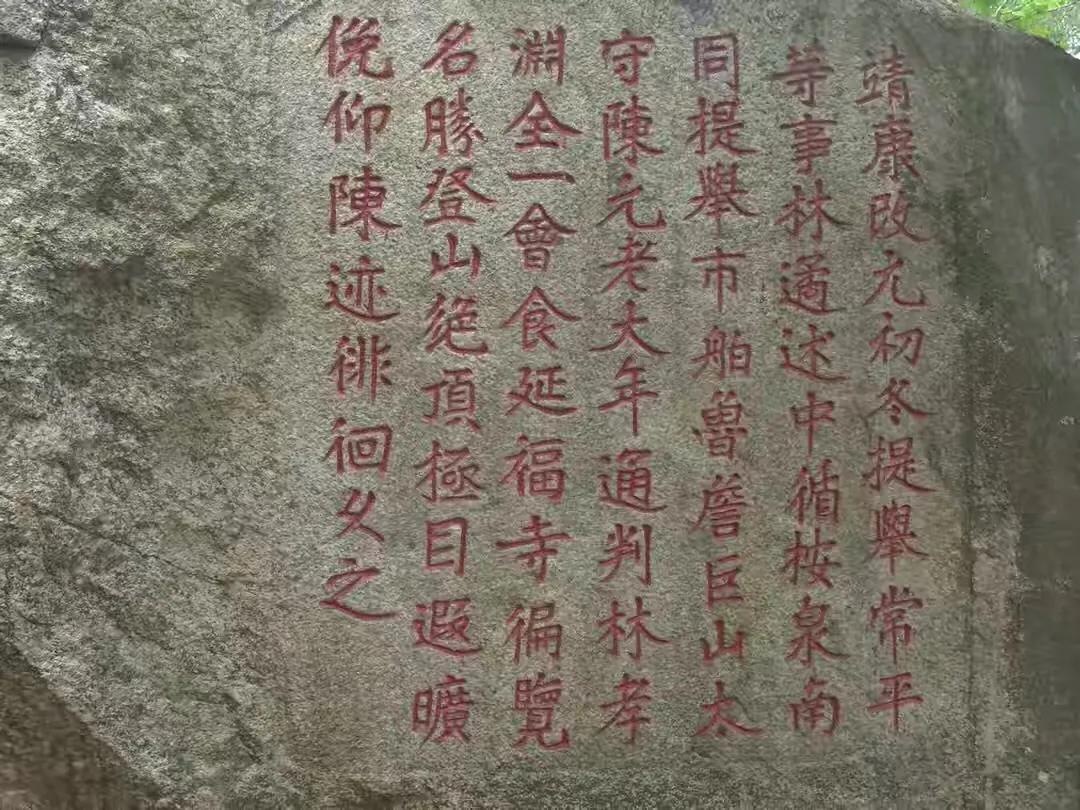 靖康改元初冬提舉常平
等事林遹述中循桉泉南
同提舉市舶魯詹巨山太
守陳元老大年通判林孝
淵全一會食延福寺徧覽
名勝登山絶頂極目遐曠
俛仰陳迹徘徊久之